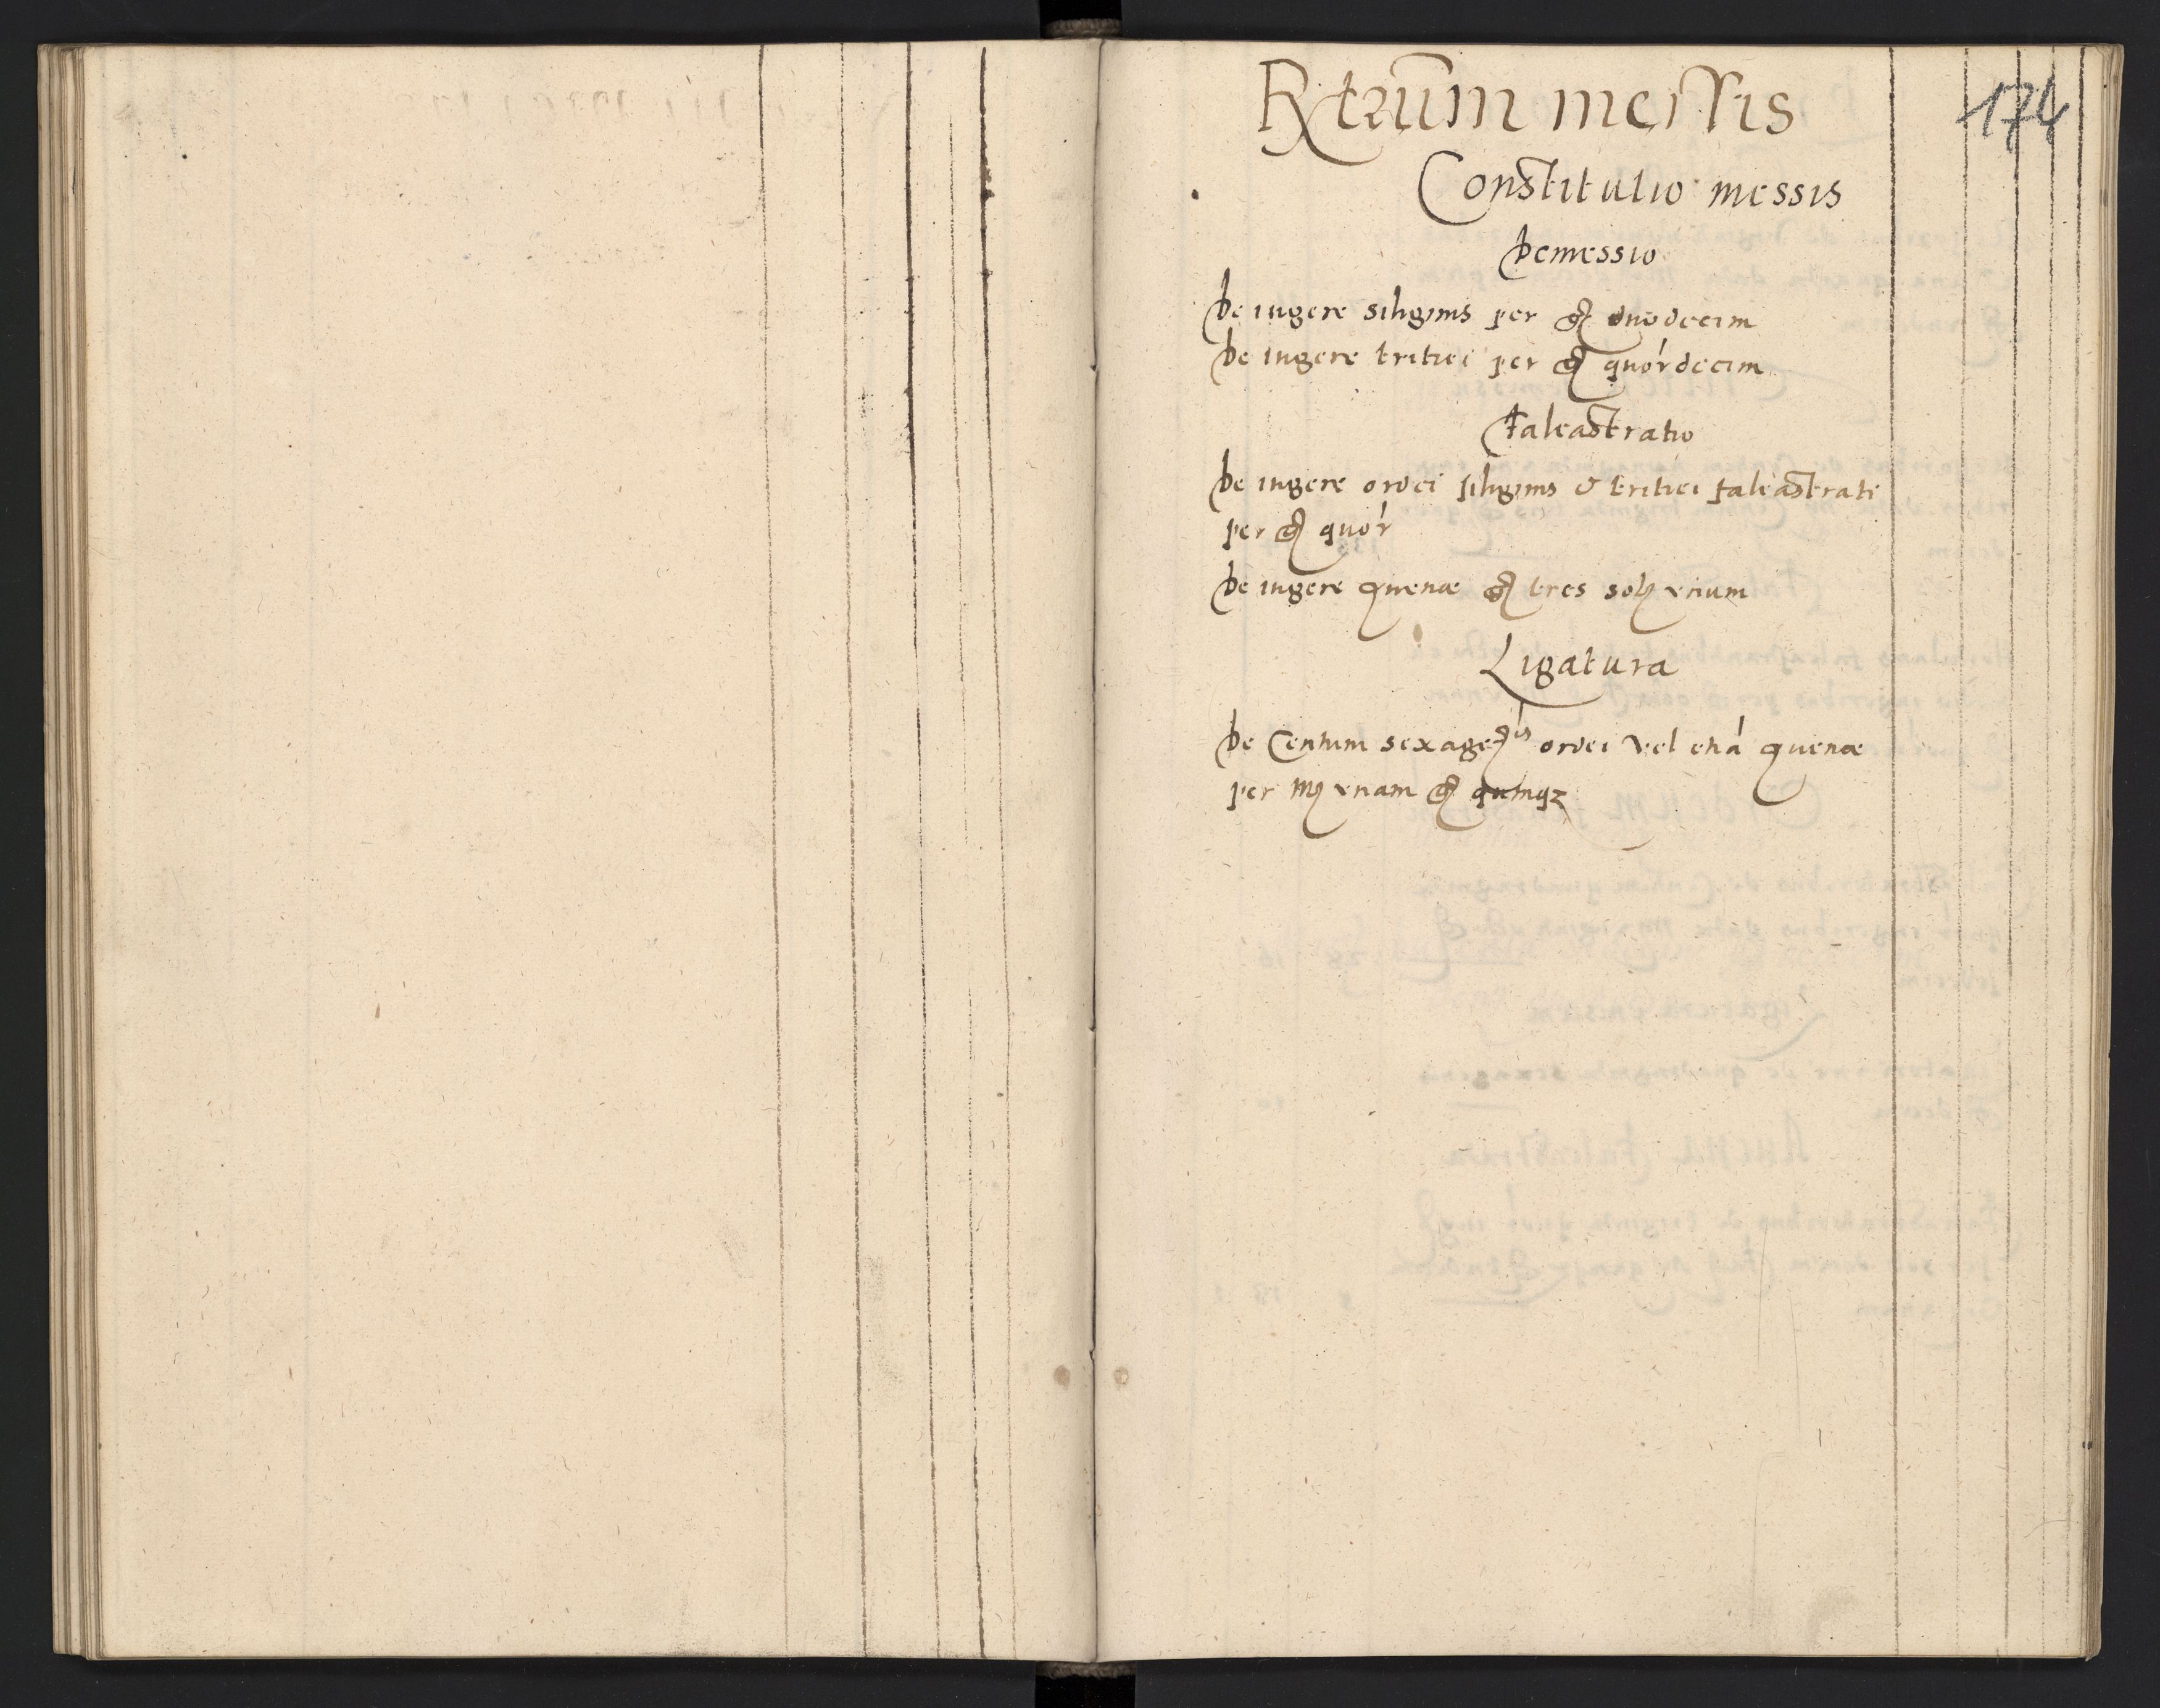 174
Rtrum messis
Constitutio messis
Demessio
De iugere siliginis per g duodecim
De iugere tritici per g quo'rdecim
Falcastratio
De iugere ordei siliginis & tritici falcastrati
per g quo'r
De iugere avenae g tres sol unum
Ligatura
De Centum sexage is ordei vel etia avenae
per m unam g quinqz